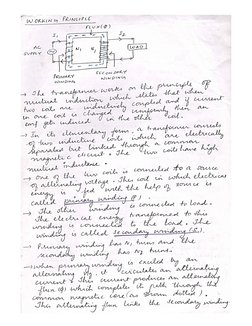 WORKING PRINCIPLE
FLUX(Φ)
I1
I2
AC
SUPPLY
N1
N2
LOAD
PRIMARY
WINDING
SECONDARY
WINDING
→ The transformer works on the principle of
mutual induction which states that when
two coil are inductively coupled and if current
in one coil is changed uniformly then an
emf gets induced in the other coil.
→ In its elementary form, a transformer consists
of two inductive coils which are electrically
separated but linked through a common
magnetic circuit. The two coils have high
mutual inductance.
→ One of the two coils is connected to a source
of alternating voltage. This coil in which electrical
energy is fed with the help of source is
called primary winding (P).
→ The other winding is connected to load.
The electrical energy transformed to this
winding is connected to the load. This
winding is called secondary winding (S).
→ Primary winding has N1 turns and the
secondary winding has N2 turns.
→ When primary winding is excited by an
alternating it circulates an alternating
current. This current produces an alternating
flux (Φ) which complete it path through the
common magnetic core (as shown dotted).
This alternating flux links the secondary winding